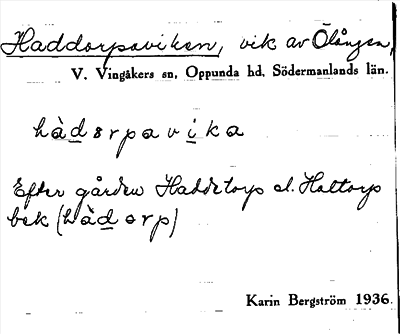 Haddorpsviken, vik av Ölången,
V. Vingåkers sn, Oppunda hd, Södermanlands län.
hàdȯrpavika
Efter gården Haddetorp el. Haltorp
bek (hàdȯrp)
Karin Bergström 1936.